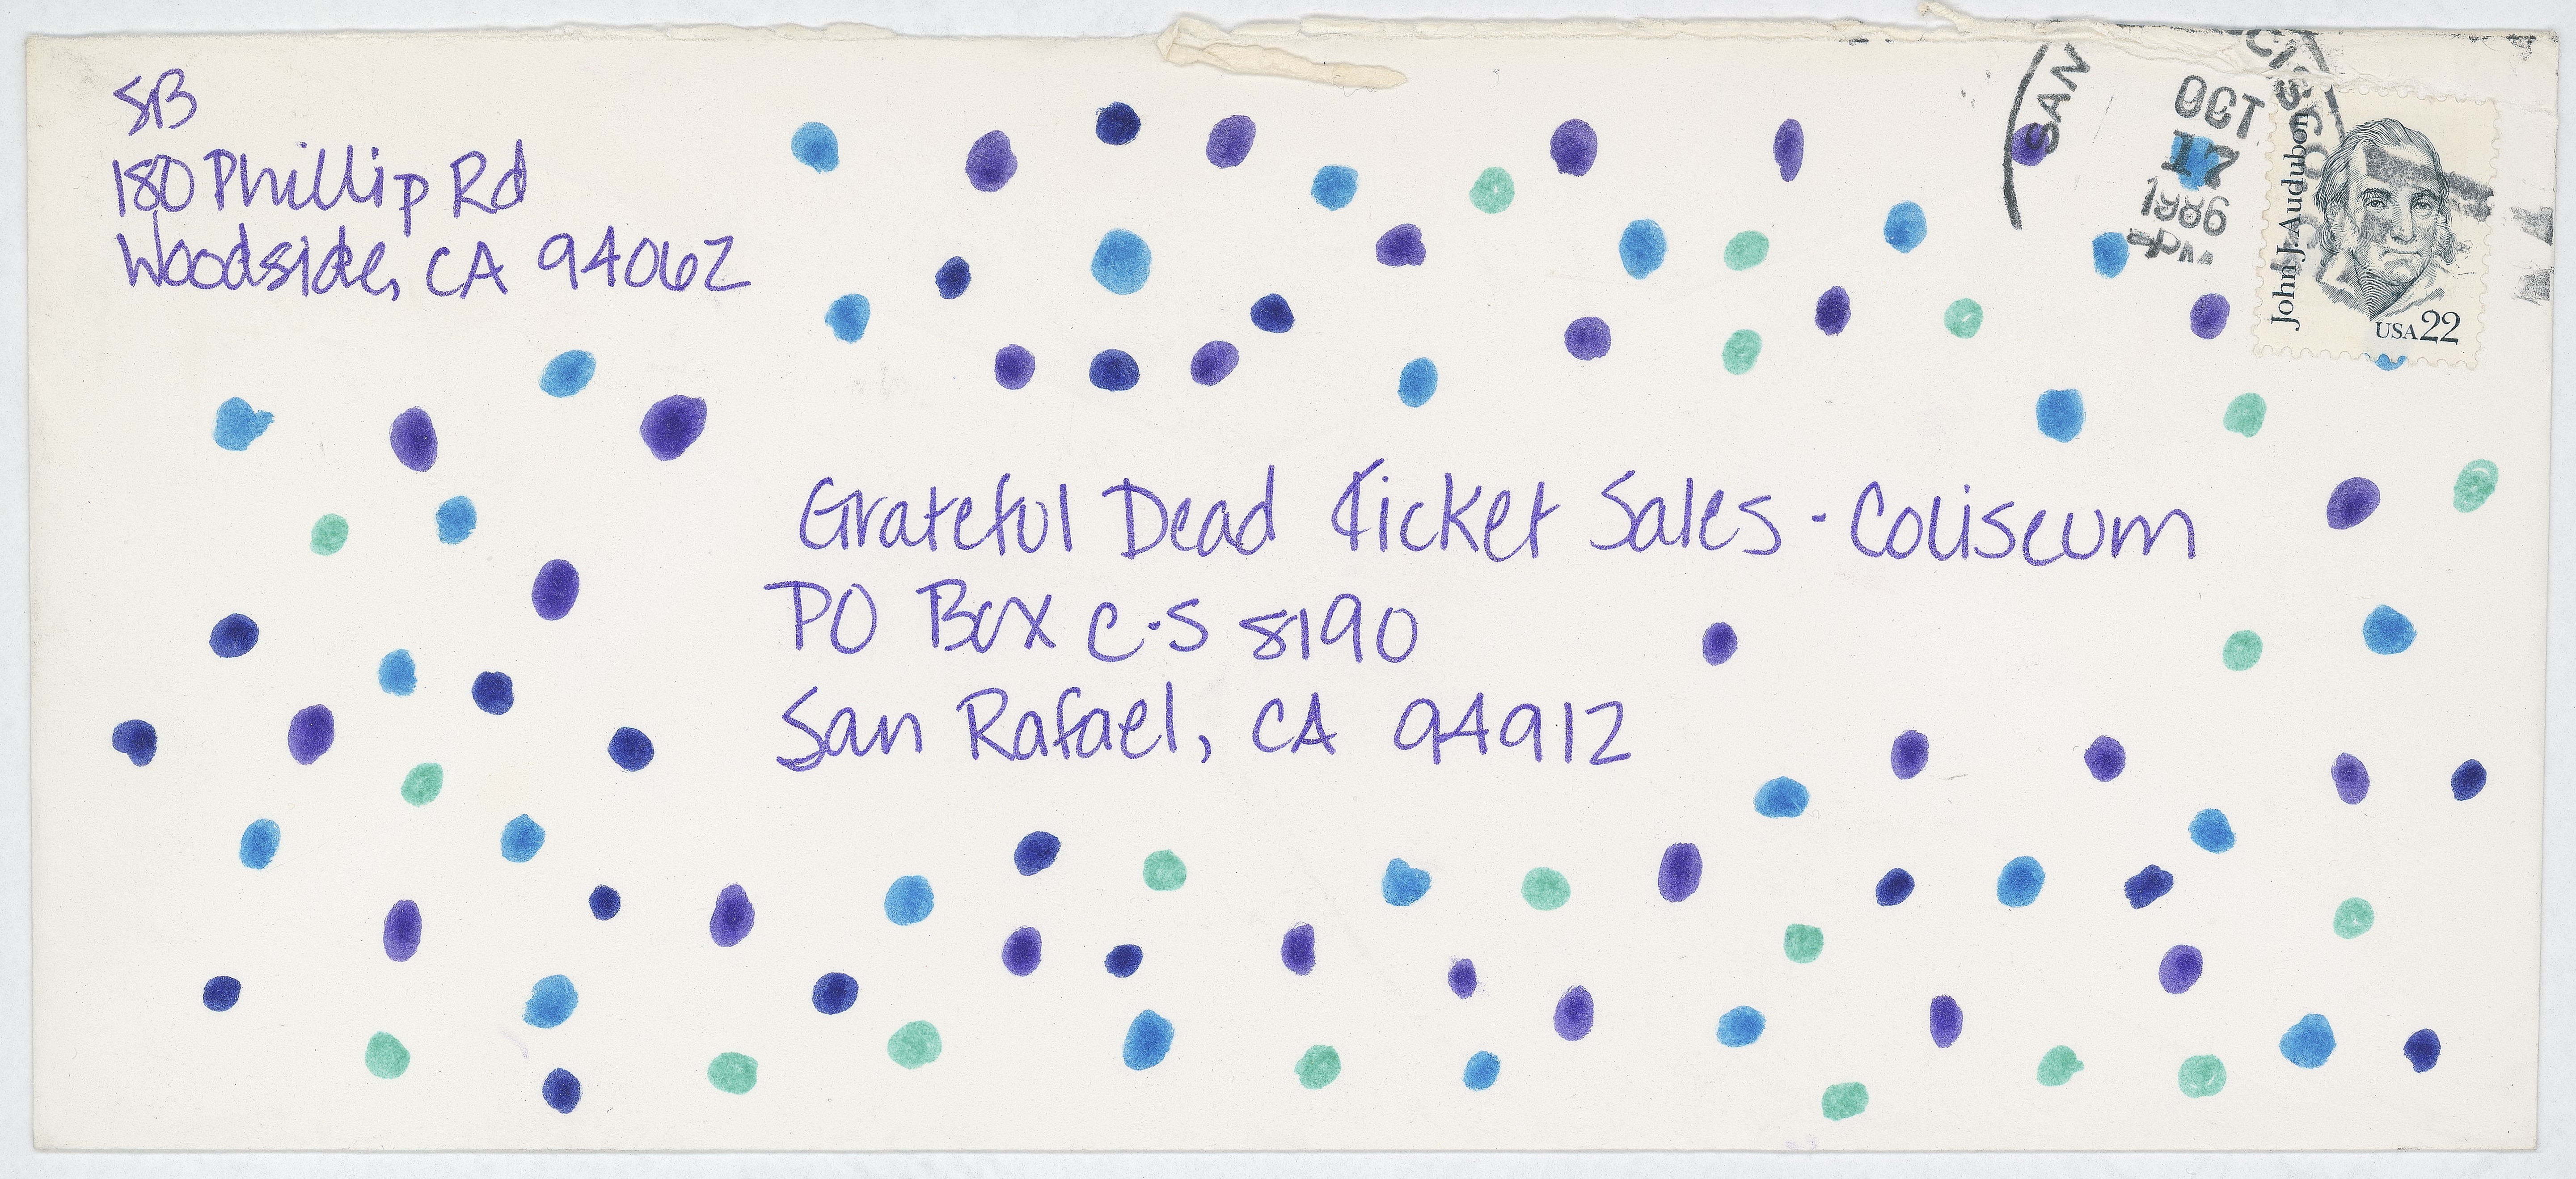 SB
180 Phillip Rd
Woodside, CA 94062
SAN
CISCO
OCT
17
1986
PM
John J. Audubon
USA 22
Grateful Dead Ticket Sales - Coliseum
PO Box C-S 8190
San Rafael, CA 94912